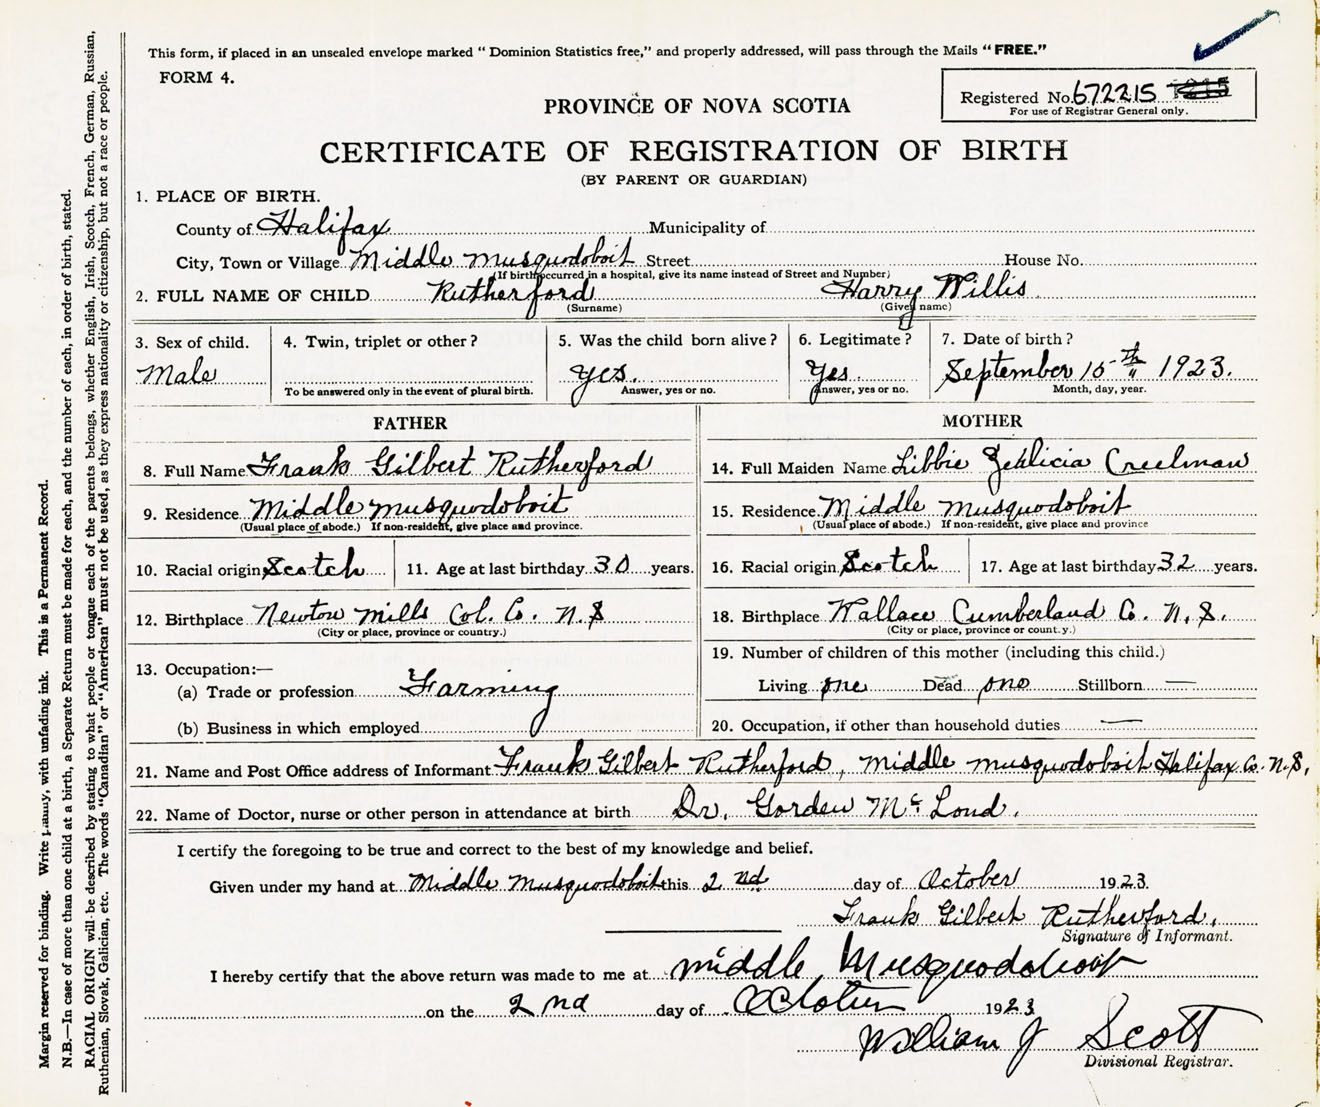 This form, if placed in an unsealed envelope marked " Dominion Statistics free," and properly addressed, will pass through the Mails " FREE."
FORM 4.
Registered No. 672215
For use of Registrar General only.
PROVINCE OF NOVA SCOTIA
CERTIFICATE OF REGISTRATION OF BIRTH
(BY PARENT OR GUARDIAN)
1. PLACE OF BIRTH.
County of Halifax Municipality of
City, Town or Village Middle Musquodoboit Street House No.
(If birth occurred in a hospital, give its name instead of Street and Number)
2. FULL NAME OF CHILD Rutherford Harry Willis
(Surname) (Given name)
3. Sex of child. 4. Twin, triplet or other? 5. Was the child born alive? 6. Legitimate? 7. Date of birth?
Male yes. Yes. September 15th 1923.
To be answered only in the event of plural birth. Answer, yes or no. Answer, yes or no. Month, day, year.
FATHER MOTHER
8. Full Name Frank Gilbert Rutherford 14. Full Maiden Name Libbie Creelman
9. Residence Middle musquodoboit 15. Residence Middle musquodoboit
(Usual place of abode.) If non-resident, give place and province. (Usual place of abode.) If non-resident, give place and province
10. Racial origin Scotch 11. Age at last birthday 30 years. 16. Racial origin Scotch 17. Age at last birthday 32 years.
12. Birthplace Newton Mills Col. Co. N.S 18. Birthplace Wallace Cumberland Co. N.S.
(City or place, province or country.) (City or place, province or country.)
13. Occupation:— 19. Number of children of this mother (including this child.)
(a) Trade or profession Farming Living one Dead one Stillborn —
(b) Business in which employed 20. Occupation, if other than household duties —
21. Name and Post Office address of Informant Frank Gilbert Rutherford, Middle musquodoboit Halifax Co. N.S,
22. Name of Doctor, nurse or other person in attendance at birth Dr. Gorden Mc Loud.
I certify the foregoing to be true and correct to the best of my knowledge and belief.
Given under my hand at Middle Musquodoboit this 2nd day of October 1923.
Frank Gilbert Rutherford,
Signature of Informant.
I hereby certify that the above return was made to me at middle Musquodoboit
on the 2nd day of October 1923
William J Scott
Divisional Registrar.
Margin reserved for binding. Write plainly, with unfading ink. This is a Permanent Record.
N.B.—In case of more than one child at a birth, a Separate Return must be made for each, and the number of each, in order of birth, stated.
RACIAL ORIGIN will be described by stating to what people or tongue each of the parents belongs, whether English, Irish, Scotch, French, German, Russian,
Ruthenian, Slovak, Galician, etc. The words "Canadian" or "American" must not be used, as they express nationality or citizenship, but not a race or people.